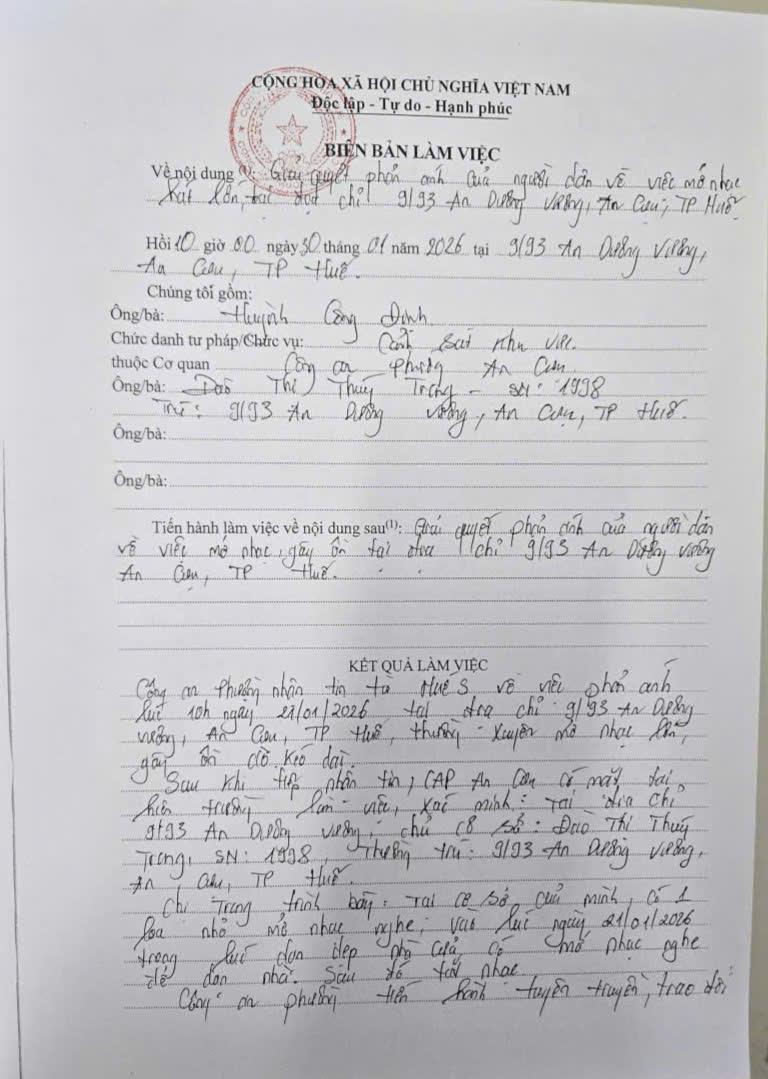 CỘNG HÒA XÃ HỘI CHỦ NGHĨA VIỆT NAM
Độc lập - Tự do - Hạnh phúc
BIÊN BẢN LÀM VIỆC
Về nội dung (1): Giải quyết phản ánh của người dân về việc mở nhạc
hát lớn, tại địa chỉ 9/93 An Dương Vương, An Cựu, TP Huế.
Hồi 10 giờ 00 ngày 30 tháng 01 năm 2026 tại 9/93 An Dương Vương,
An Cựu, TP Huế.
Chúng tôi gồm:
Ông/bà: Huỳnh Công Định
Chức danh tư pháp/Chức vụ: Cảnh sát khu vực.
thuộc Cơ quan Công an phường An Cựu.
Ông/bà: Đào Thị Thuỳ Trang - SN: 1998
Trú: 9/93 An Dương Vương, An Cựu, TP Huế.
Ông/bà:
Ông/bà:
Tiến hành làm việc về nội dung sau(1): Giải quyết phản ánh của người dân
về việc mở nhạc, gây ồn tại địa chỉ 9/93 An Dương Vương
An Cựu, TP Huế.
KẾT QUẢ LÀM VIỆC
Công an Phường nhận tin từ Huế S về việc phản ánh
lúc 10h ngày 21/01/2026 tại địa chỉ 9/93 An Dương
Vương, An Cựu, TP Huế, thường xuyên mở nhạc lớn,
gây ồn ào kéo dài.
Sau khi tiếp nhận tin, CAP An Cựu có mặt tại
hiện trường làm việc, xác minh: Tại địa chỉ
9/93 An Dương Vương, chủ cơ sở: Đào Thị Thuỳ
Trang, SN: 1998, Thường trú: 9/93 An Dương Vương,
An Cựu, TP Huế.
Chị Trang trình bày: Tại cơ sở của mình, có 1
loa nhỏ mở nhạc nghe, vào lúc ngày 21/01/2026
trong lúc dọn dẹp nhà cửa, có mở nhạc nghe
để dọn nhà. Sau đó tắt nhạc.
Công an phường tiến hành tuyên truyền, trao đổi